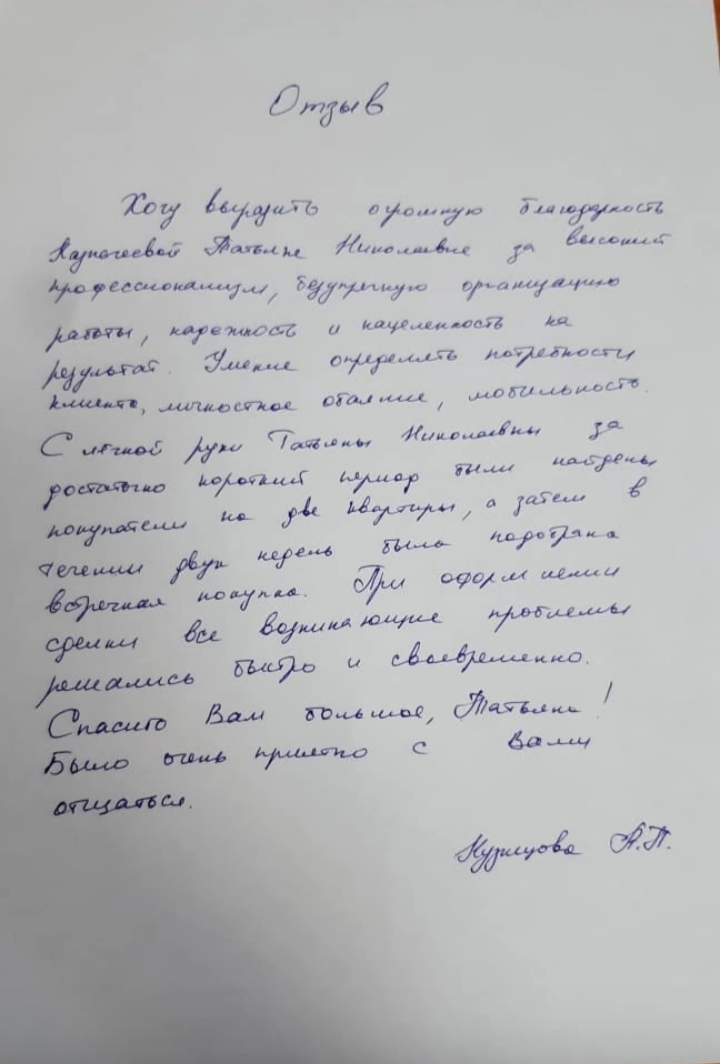 Отзыв
Хочу выразить огромную благодарность
Татьяне Николаевне за высокий
профессионализм, безупречную организацию
работы, надежность и нацеленность на
результат. Умение определять потребности
клиента, личностное обаяние, мобильность.
С лёгкой руки Татьяны Николаевны за
достаточно короткий период были найдены
покупатели на две квартиры, а затем в
течении двух недель была подобрана
встречная покупка. При оформлении
сделки все возникающие проблемы
решались быстро и своевременно.
Спасибо Вам большое, Татьяна!
Было очень приятно с Вами
общаться.
Кузнецова А.П.